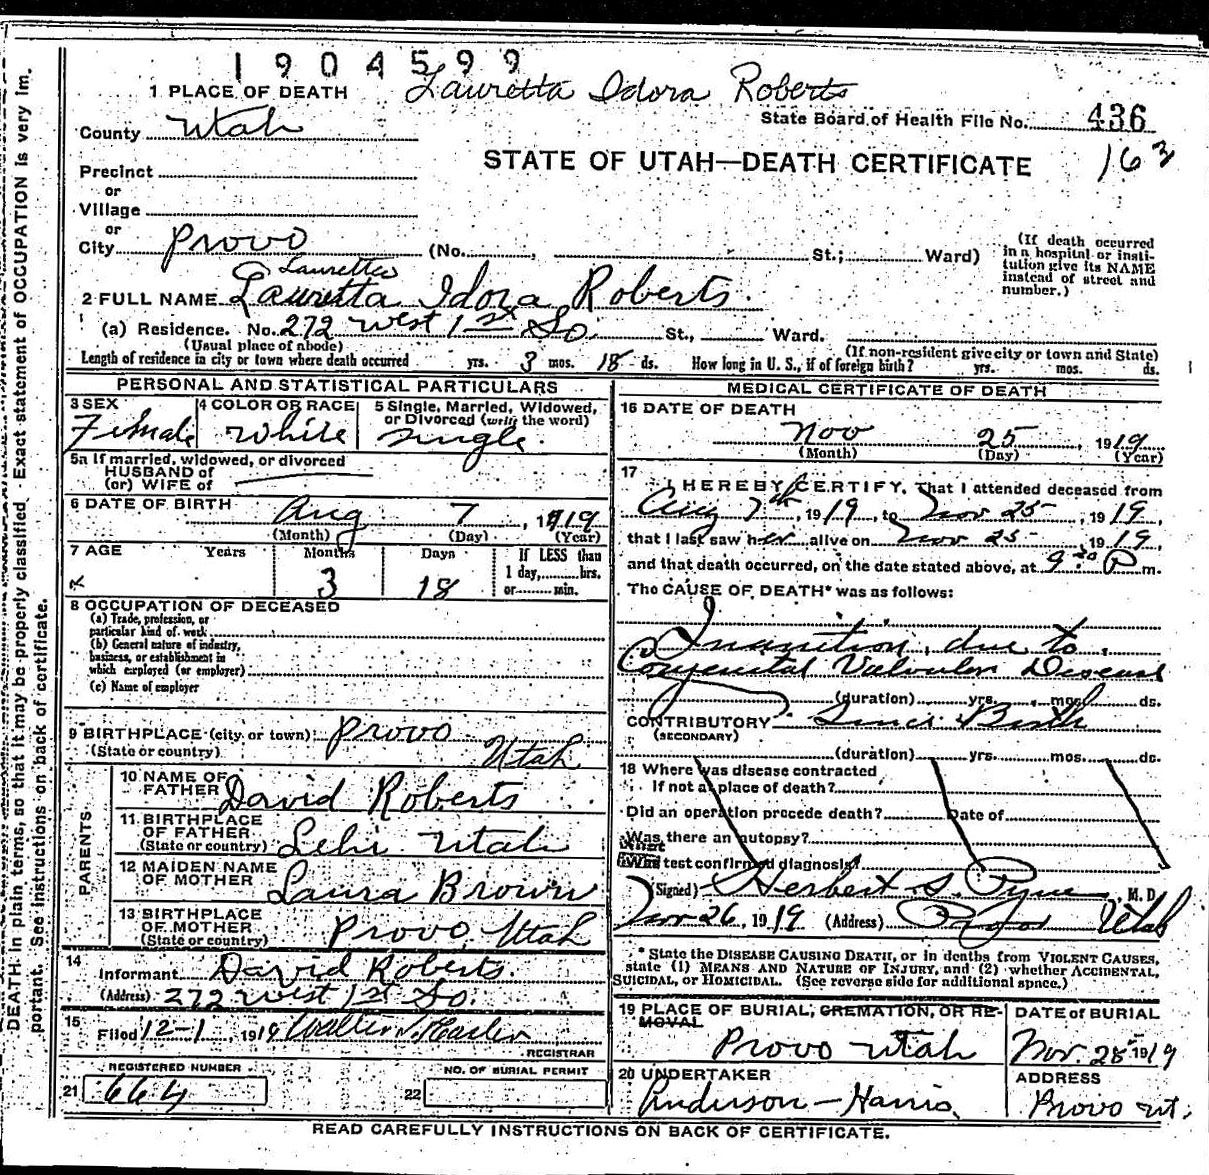 1904599
Lauretta Idora Roberts
1 PLACE OF DEATH
State Board of Health File No. 436
County Utah
163
STATE OF UTAH—DEATH CERTIFICATE
Precinct
or
Village
or
City Provo (No. , St.; Ward)
(If death occurred in a hospital or institution give its NAME instead of street and number.)
Lauretta
2 FULL NAME Lauretta Idora Roberts.
(a) Residence. No. 272 West 1st So. St., Ward.
(Usual place of abode) (If non-resident give city or town and State)
Length of residence in city or town where death occurred yrs. 3 mos. 18 ds. How long in U. S., if of foreign birth? yrs. mos. ds.
PERSONAL AND STATISTICAL PARTICULARS
3 SEX Female
4 COLOR OR RACE White
5 Single, Married, Widowed, or Divorced (write the word) Single.
5a If married, widowed, or divorced
HUSBAND of
(or) WIFE of
6 DATE OF BIRTH Aug 7, 1919
(Month) (Day) (Year)
7 AGE Years Months Days If LESS than
3 18 1 day,.......hrs.
or.......min.
8 OCCUPATION OF DECEASED
(a) Trade, profession, or particular kind of work
(b) General nature of industry, business, or establishment in which employed (or employer)
(c) Name of employer
9 BIRTHPLACE (city or town) Provo
(State or country) Utah
PARENTS
10 NAME OF FATHER David Roberts
11 BIRTHPLACE OF FATHER (State or country) Lehi Utah
12 MAIDEN NAME OF MOTHER Laura Brown
13 BIRTHPLACE OF MOTHER (State or country) Provo, Utah
14 Informant David Roberts.
(Address) 272 West 1st So.
15 Filed 12-1, 1919 Walter T. Hasler
REGISTRAR
REGISTERED NUMBER
21 664
NO. OF BURIAL PERMIT
22
MEDICAL CERTIFICATE OF DEATH
16 DATE OF DEATH
Nov 25, 1919
(Month) (Day) (Year)
17 I HEREBY CERTIFY, That I attended deceased from
Aug 7th, 1919, to Nov 25, 1919,
that I last saw her alive on Nov 25, 1919,
and that death occurred, on the date stated above, at 9:30 P m.
The CAUSE OF DEATH* was as follows:
Inanition, due to
Congenital Valvular Disease
(duration) yrs. mos. ds.
CONTRIBUTORY Since Birth
(SECONDARY)
(duration) yrs. mos. ds.
18 Where was disease contracted
If not at place of death?
Did an operation precede death? Date of
Was there an autopsy?
What test confirmed diagnosis?
(Signed) Herbert S. Pyne, M. D.
Nov 26, 1919 (Address) Provo Utah
* State the DISEASE CAUSING DEATH, or in deaths from VIOLENT CAUSES,
state (1) MEANS AND NATURE OF INJURY, and (2) whether ACCIDENTAL,
SUICIDAL, or HOMICIDAL. (See reverse side for additional space.)
19 PLACE OF BURIAL, CREMATION, OR REMOVAL
Provo Utah
DATE of BURIAL
Nov. 28 1919
20 UNDERTAKER
Anderson – Harris,
ADDRESS
Provo Ut.
READ CAREFULLY INSTRUCTIONS ON BACK OF CERTIFICATE.
DEATH in plain terms, so that it may be properly classified. Exact statement of OCCUPATION is very im-
portant. See instructions on back of certificate.